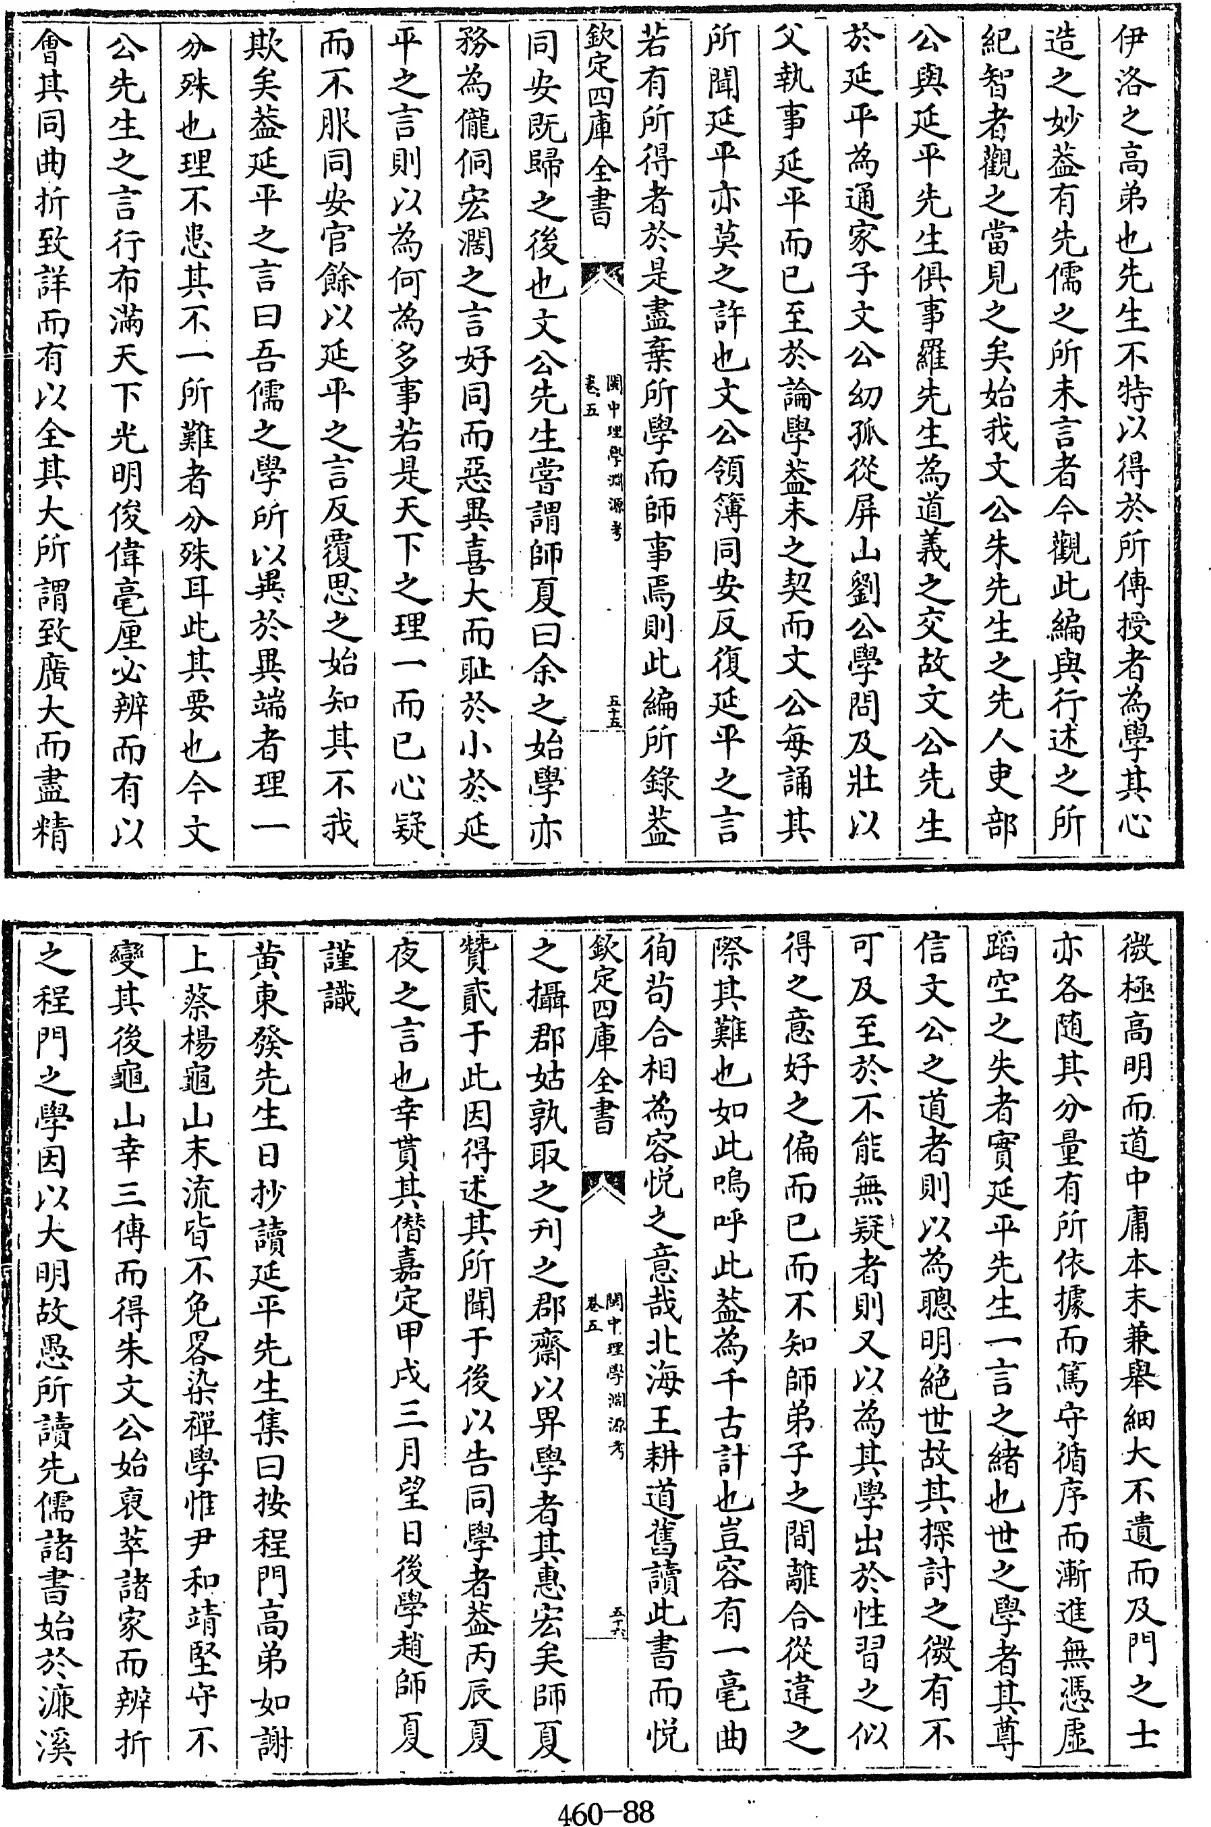 伊洛之高弟也先生不特以得於所傳授者為學其心
造之妙葢有先儒之所未言者今觀此編與行述之所
紀智者觀之當見之矣始我文公朱先生之先人吏部
公與延平先生俱事羅先生為道義之交故文公先生
於延平為通家子文公幼孤從屏山劉公學問及壯以
父執事延平而已至於論學葢未之契而文公每誦其
所聞延平亦莫之許也文公領簿同安反復延平之言
若有所得者於是盡棄所學而師事焉則此編所錄葢
欽定四庫全書
閩中理學淵源考
卷五
五十五
同安既歸之後也文公先生嘗謂師夏曰余之始學亦
務為儱侗宏濶之言好同而惡異喜大而耻於小於延
平之言則以為何為多事若是天下之理一而已心疑
而不服同安官餘以延平之言反覆思之始知其不我
欺矣葢延平之言曰吾儒之學所以異於異端者理一
分殊也理不患其不一所難者分殊耳此其要也今文
公先生之言行布滿天下光明俊偉毫厘必辨而有以
會其同曲折致詳而有以全其大所謂致廣大而盡精
微極高明而道中庸本末兼舉細大不遺而及門之士
亦各随其分量有所依據而篤守循序而漸進無憑虛
蹈空之失者實延平先生一言之緒也世之學者其尊
信文公之道者則以為聰明絶世故其探討之微有不
可及至於不能無疑者則又以為其學出於性習之似
得之意好之偏而已而不知師弟子之間離合從違之
際其難也如此嗚呼此葢為千古計也豈容有一毫曲
徇苟合相為容悦之意哉北海王耕道舊讀此書而悦
欽定四庫全書
閩中理學淵源考
卷五
五十六
之攝郡姑孰取之刋之郡齋以畀學者其惠宏矣師夏
贊貳于此因得述其所聞于後以告同學者葢丙辰夏
夜之言也幸貰其僭嘉定甲戌三月望日後學趙師夏
謹識
黄東發先生日抄讀延平先生集曰按程門高弟如謝
上蔡楊龜山末流皆不免畧染禪學惟尹和靖堅守不
變其後龜山幸三傳而得朱文公始裒萃諸家而辨折
之程門之學因以大明故愚所讀先儒諸書始於濂溪
460-88